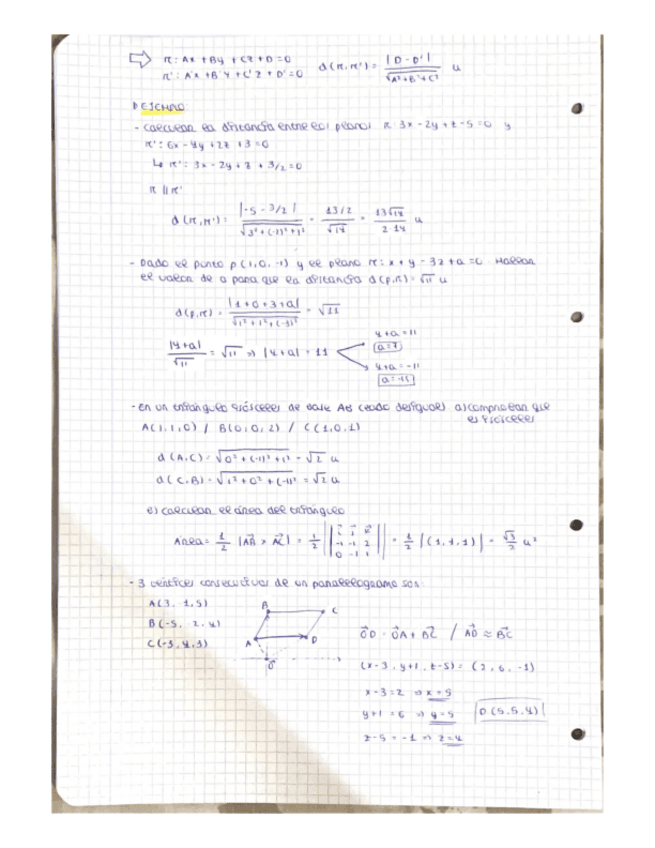 π: Ax + By + Cz + D = 0
π': A'x + B'y + C'z + D' = 0
d(π, π') = |D - D'| / √A²+B²+C² u
EJEMPLO:
- Calcular la distancia entre los planos π: 3x - 2y + z - 5 = 0 y
π': 6x - 4y + 2z + 3 = 0
↳ π': 3x - 2y + z + 3/2 = 0
π || π'
d(π, π') = |-5 - 3/2| / √3² + (-2)² + 1² = 13/2 / √14 = 13√14 / 2·14 u
- Dado el punto P(1, 0, -1) y el plano π: x + y - 3z + a = 0 Hallar
el valor de a para que la distancia d(P, π) = √11 u
d(P, π) = |1 + 0 + 3 + a| / √1² + 1² + (-3)² = √11
|4 + a| / √11 = √11 ⇒ |4 + a| = 11
4 + a = 11
a = 7
4 + a = -11
a = -15
- En un triángulo isósceles de base AB (lado desigual) a) comprobar que
es isósceles
A(1, 1, 0) / B(0, 0, 2) / C(1, 0, 1)
d(A, C) = √0² + (-1)² + 1² = √2 u
d(C, B) = √1² + 0² + (-1)² = √2 u
b) calcular el área del triángulo
Área = 1/2 |AB × AC| = 1/2 || i j k / -1 -1 2 / 0 -1 1 || = 1/2 |(1, 1, 1)| = √3/2 u²
- 3 vértices consecutivos de un paralelogramo son:
A(3, -1, 5)
B(-5, -2, 4)
C(-3, 4, 3)
B C
A D
O
OD = OA + BC / AD ≈ BC
(x-3, y+1, z-5) = (2, 6, -1)
x - 3 = 2 ⇒ x = 5
y + 1 = 6 ⇒ y = 5
D(5, 5, 4)
z - 5 = -1 ⇒ z = 4